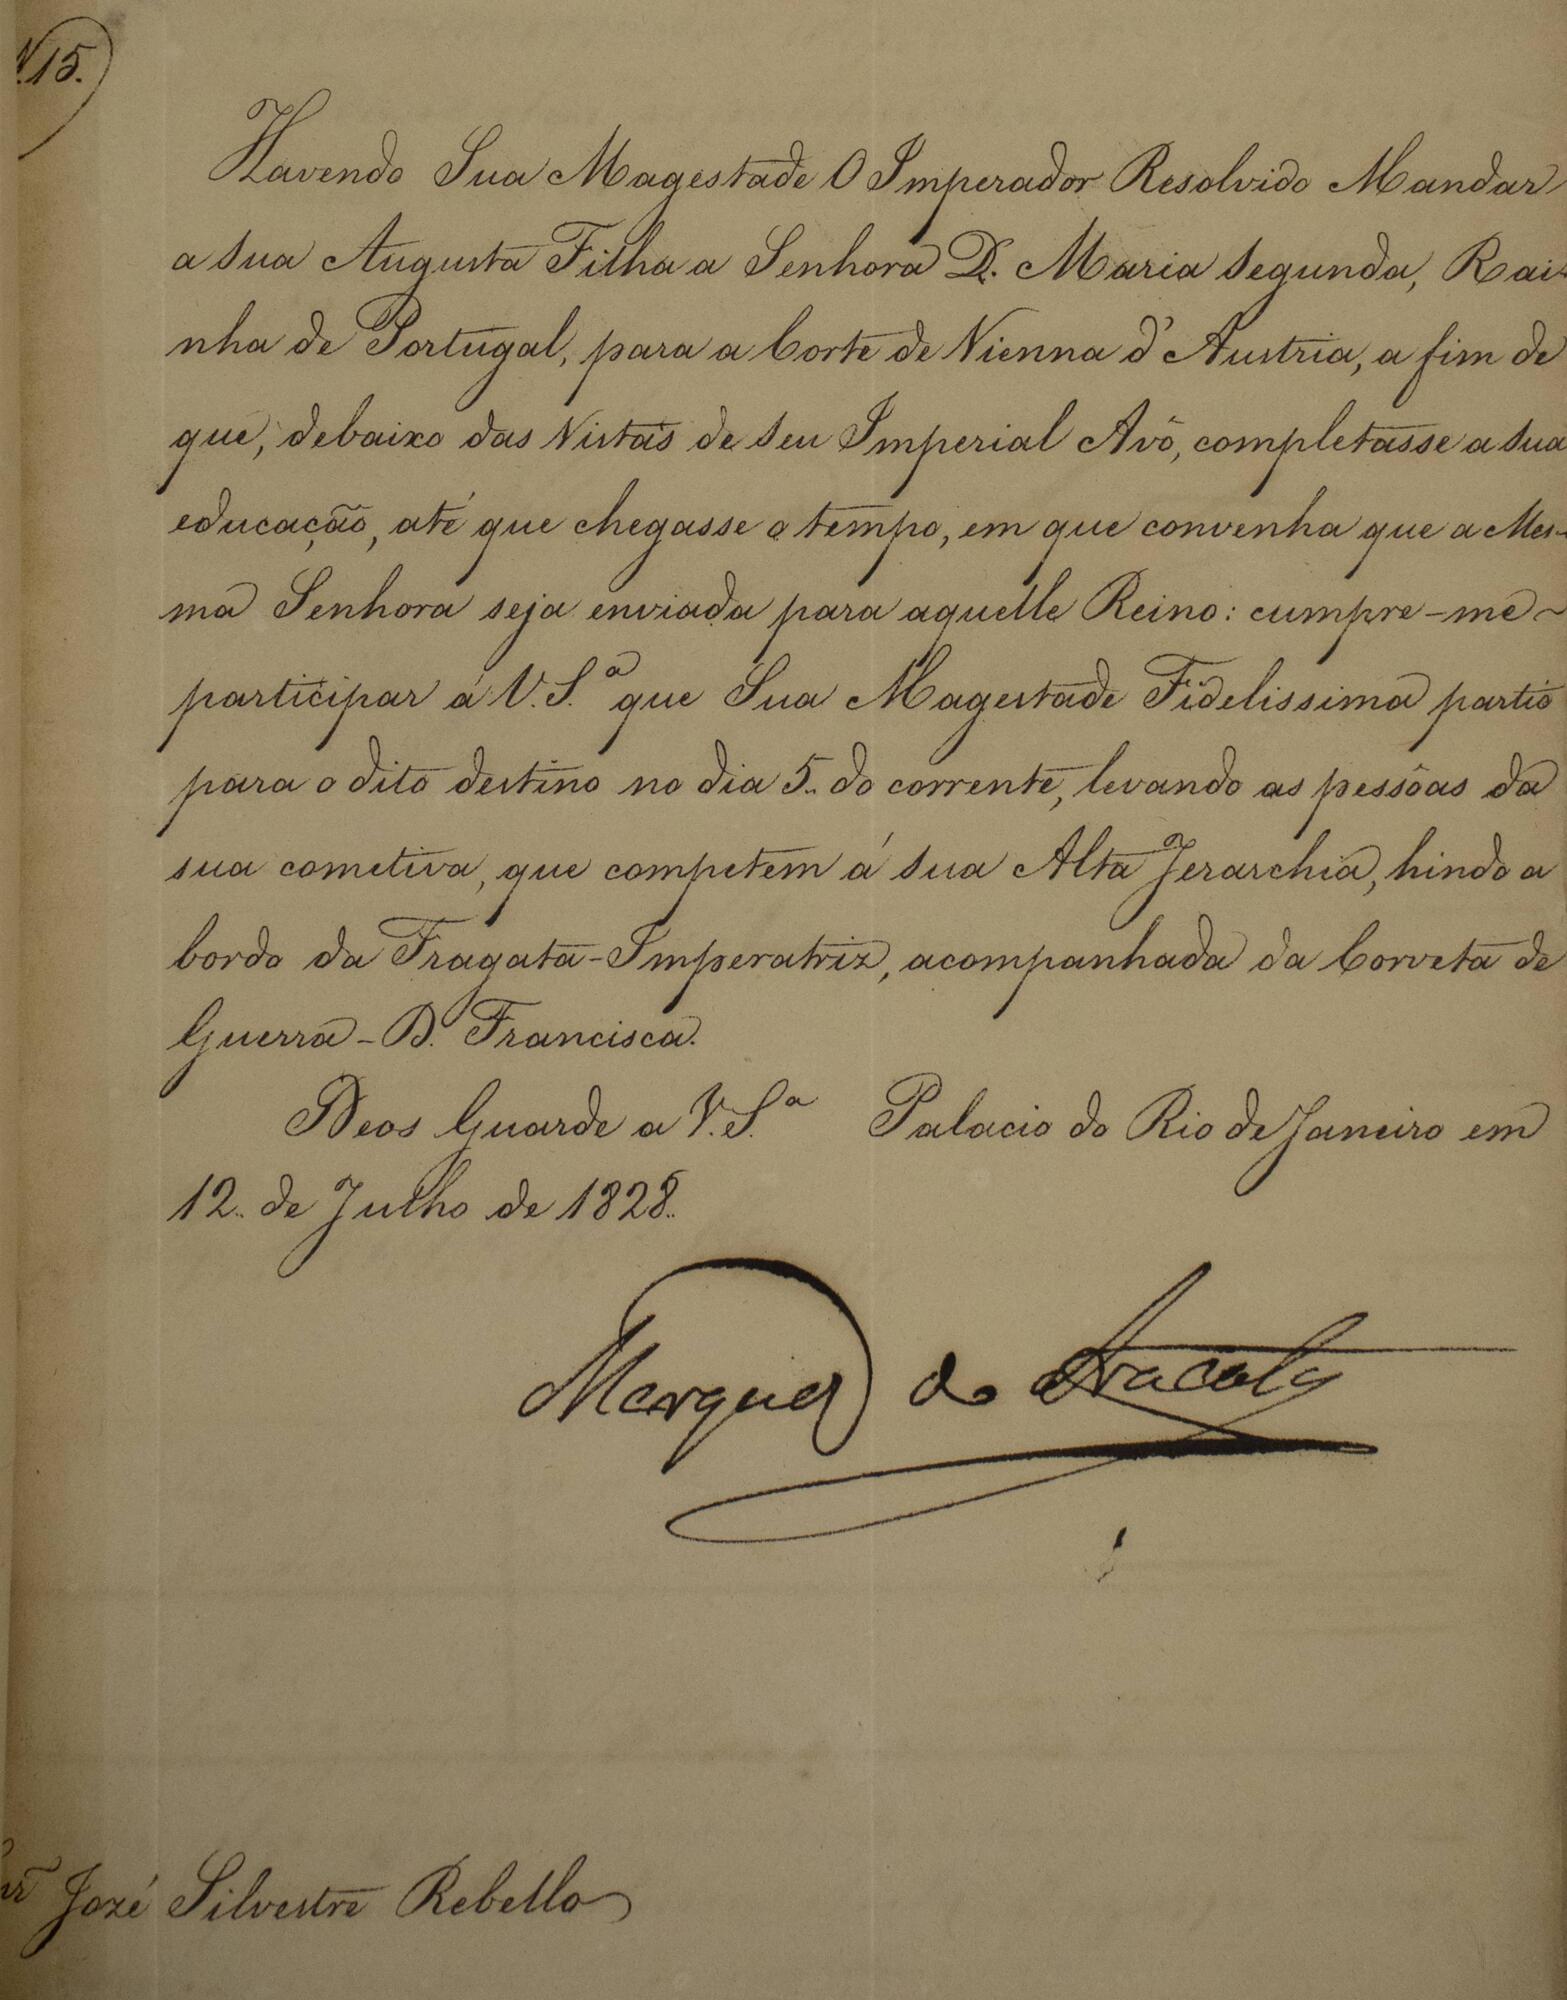 N.15.
Havendo Sua Magestade O Imperador Resolvido Mandar
a sua Augusta Filha a Senhora D. Maria Segunda, Rai-
nha de Portugal, para a Corte de Vienna d'Austria, a fim de
que, debaixo das Vistas de seu Imperial Avô, completasse a sua
educação, até que chegasse o tempo, em que convenha que a Mes-
ma Senhora seja enviada para aquelle Reino: cumpre-me
participar á V. S.ª que Sua Magestade Fidelissima partio
para o dito destino no dia 5.. do corrente, levando as pessôas da
sua cometiva, que competem á sua Alta Jerarchia, hindo a
bordo da Fragata-Imperatriz, acompanhada da Corveta de
Guerra-D. Francisca.
Deos Guarde a V. S.ª Palacio do Rio de Janeiro em
12.. de Julho de 1828..
Marquez do Aracaty
Snr José Silvestre Rebello